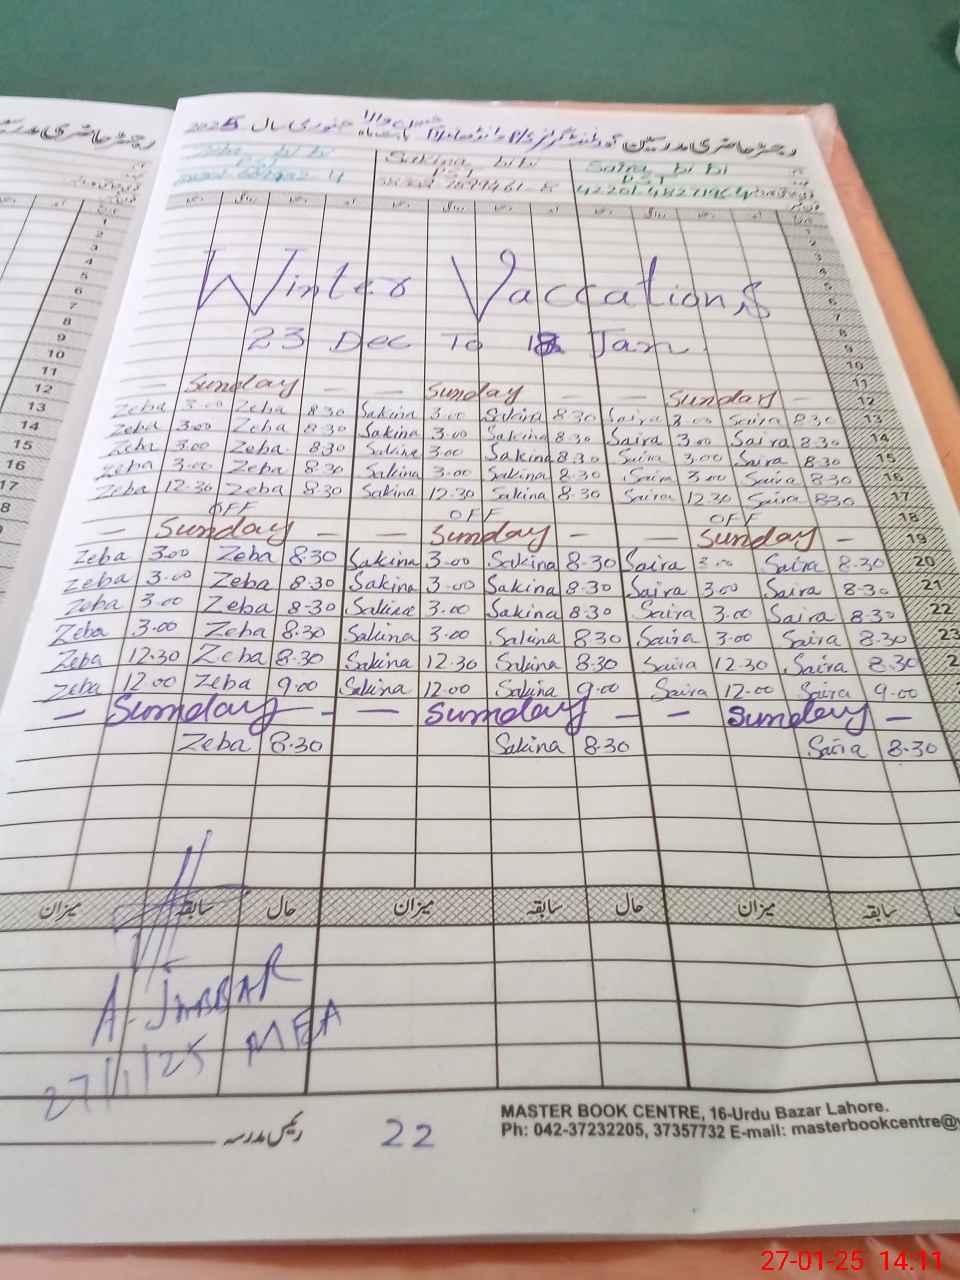 رجسٹر حاضری مدرسین
جنوری سال 2025
Zeba bi bi Sakina bi bi Saira bi bi
PST PST PST
Winter Vaccations
23 Dec To Jan.
— Sunday — — Sunday — — Sunday — 12
Zeba 3.00 Zeba 8.30 Sakina 3.00 Sakina 8.30 Saira 3.00 Saira 8.30 13
Zeba 3.00 Zeba 8.30 Sakina 3.00 Sakina 8.30 Saira 3.00 Saira 8.30 14
Zeba 3.00 Zeba 8.30 Sakina 3.00 Sakina 8.30 Saira 3.00 Saira 8.30 15
Zeba 3.00 Zeba 8.30 Sakina 3.00 Sakina 8.30 Saira 3.00 Saira 8.30 16
Zeba 12.30 Zeba 8.30 Sakina 12.30 Sakina 8.30 Saira 12.30 Saira 8.30 17
OFF OFF OFF 18
— Sunday — — Sunday — — Sunday — 19
Zeba 3.00 Zeba 8.30 Sakina 3.00 Sakina 8.30 Saira 3.00 Saira 8.30 20
Zeba 3.00 Zeba 8.30 Sakina 3.00 Sakina 8.30 Saira 3.00 Saira 8.30 21
Zeba 3.00 Zeba 8.30 Sakina 3.00 Sakina 8.30 Saira 3.00 Saira 8.30 22
Zeba 3.00 Zeba 8.30 Sakina 3.00 Sakina 8.30 Saira 3.00 Saira 8.30 23
Zeba 12.30 Zeba 8.30 Sakina 12.30 Sakina 8.30 Saira 12.30 Saira 8.30
Zeba 12.00 Zeba 9.00 Sakina 12.00 Sakina 9.00 Saira 12.00 Saira 9.00
— Sunday — — Sunday — — Sunday —
Zeba 8.30 Sakina 8.30 Saira 8.30
میزان سابقہ حال میزان سابقہ حال میزان سابقہ
A. JABBAR
27/1/25 MEA
رئیس مدرسہ
22
MASTER BOOK CENTRE, 16-Urdu Bazar Lahore.
Ph: 042-37232205, 37357732 E-mail: masterbookcentre@
27-01-25 14:11